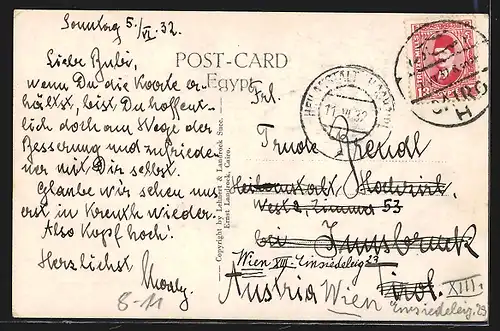 Sonntag 5./VI. 32.
Liebe
wenn Du die Karte er-
hältst, bist Du hoffent-
lich doch am Wege der
Besserung und zufriede-
ner mit Dir selbst.
Glaube wir sehen uns
erst in Kreuth wieder.
Also Kopf hoch!
Herzlichst
8-11
POST-CARD
Egypt
Copyright by Lehnert & Landrock Succ.
Ernst Landrock, Cairo.
Frl.
Trude
Heilanstalt, Hochzirl,
West 2, Zimmer 53
bei Innsbruck
Wien XIII. Einsiedeleig. 23
Tirol.
Austria Wien XIII.
Einsiedeleig. 23
11 VI 32
CAIRO
H